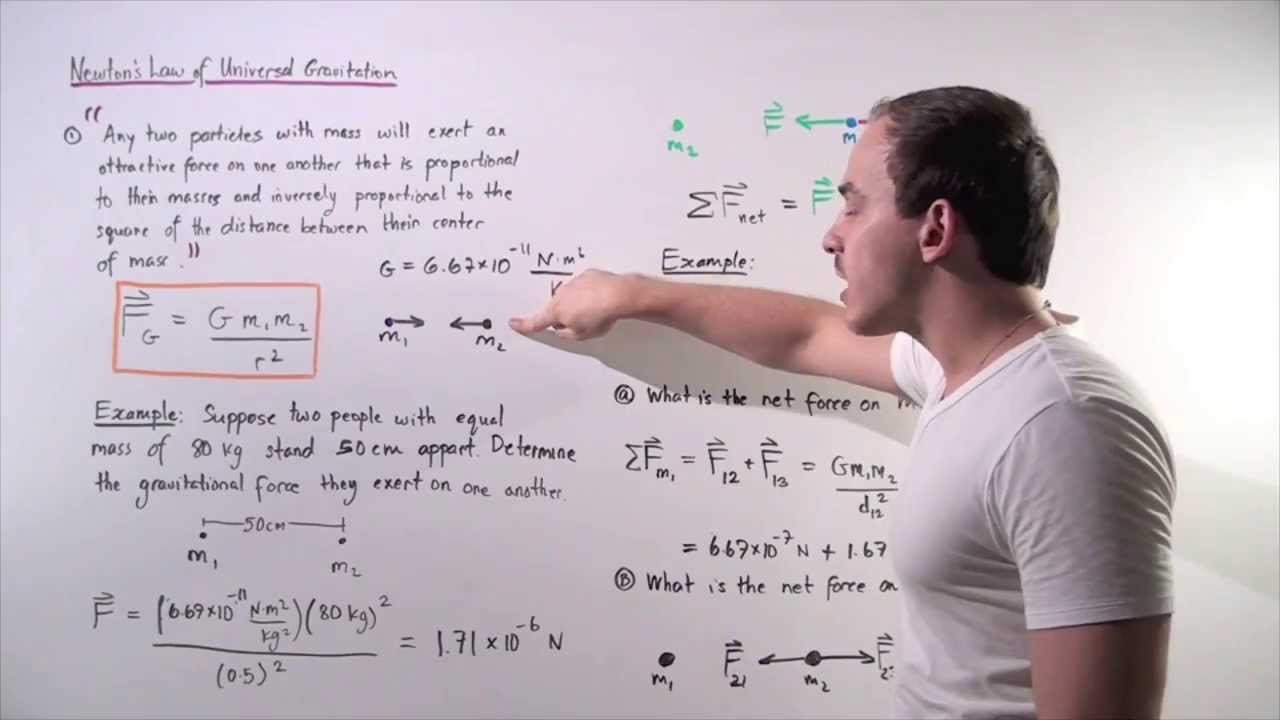 Newton's Law of Universal Gravitation
"
① Any two particles with mass will exert an
attractive force on one another that is proportional
to their masses and inversely proportional to the
square of the distance between their center
of mass."
G = 6.67×10⁻¹¹ N·m²
F⃗_G = G m₁m₂ / r²
m₁ m₂
Example: Suppose two people with equal
mass of 80 kg stand 50cm appart. Determine
the gravitational force they exert on one another.
50cm
m₁ m₂
F⃗ = (6.67×10⁻¹¹ N·m²/kg²)(80 kg)² / (0.5)² = 1.71×10⁻⁶ N
m₂ F⃗ m
ΣF⃗_net = F⃗
Example:
Ⓐ What is the net force on
ΣF⃗_m₁ = F⃗₁₂ + F⃗₁₃ = Gm₁m₂ / d₁₂²
= 6.67×10⁻⁷ N + 1.67
Ⓑ What is the net force on
m₁ F⃗₂₁ m₂ F⃗₂